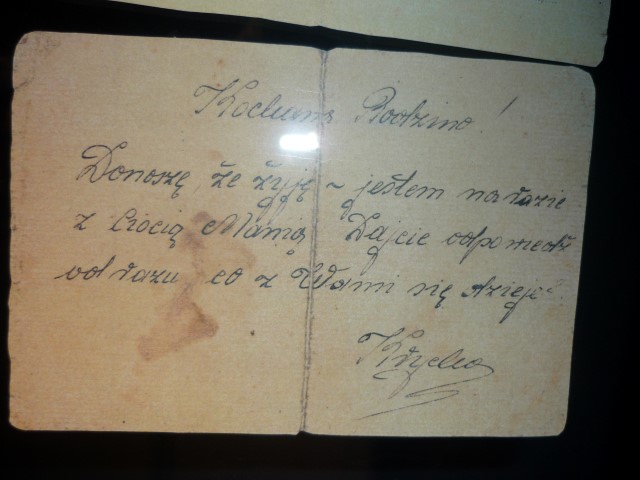 Kochana Rodzino!
Donoszę, że żyję ~ jestem na razie
z Ciocią Manią. Dajcie odpowiedź
od razu, co z Wami się dzieje.
Krycha